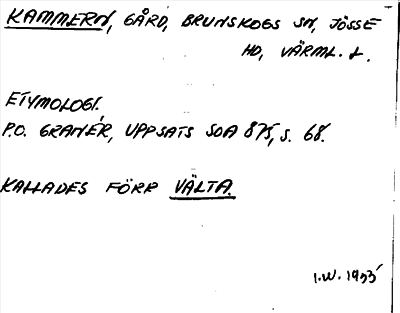 KAMMERN, GÅRD, BRUNSKOGS SN, JÖSSE
HD, VÄRML. L.
ETYMOLOGI.
P.O. GRANÉR, UPPSATS SOA 875, S. 68.
KALLADES FÖRR VÄLTA.
I.W. 1933